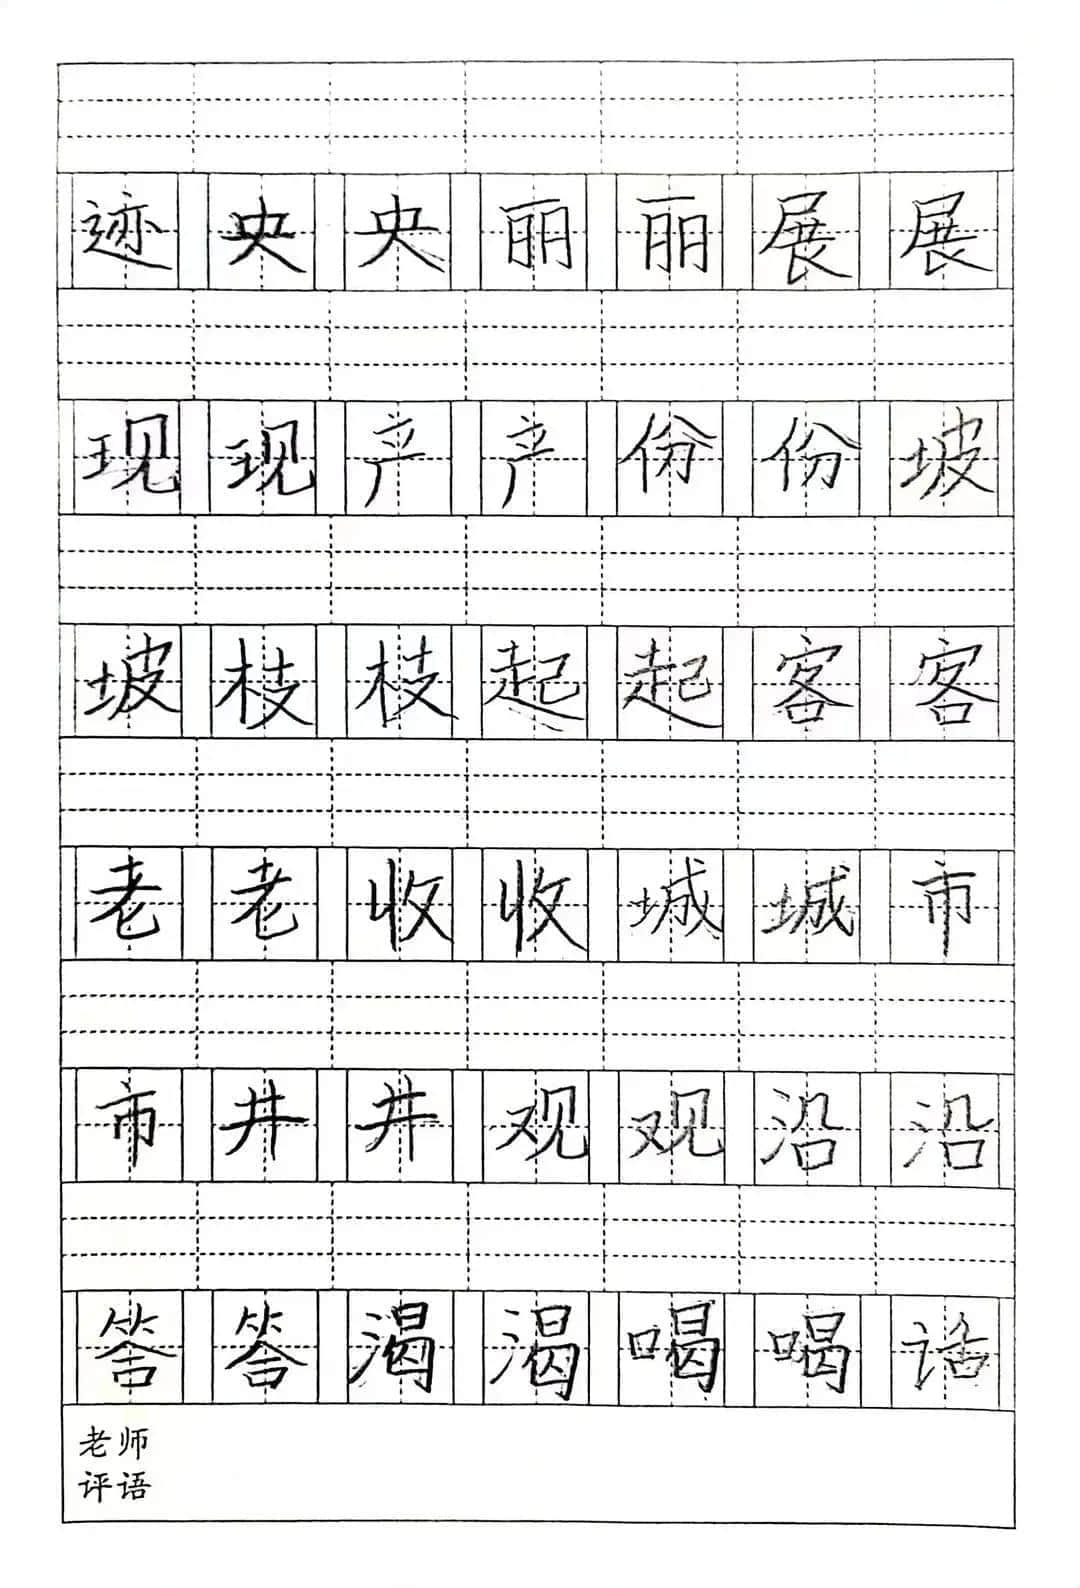 迹央央丽丽展展
现现产产份份坡
坡枝枝起起客客
老老收收城城市
市井井观观沿沿
答答渴渴喝喝话
老师
评语